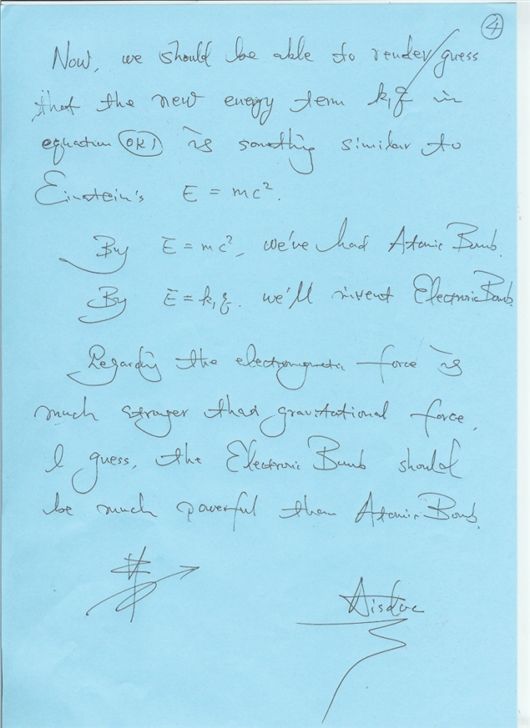 ④
Now, we should be able to render/guess
that the new energy term k₁q in
equation OK1 is something similar to
Einstein's E = mc².
By E = mc², we've had Atomic Bomb.
By E = k₁q. we'll invent Electronic Bomb.
Regarding the electromagnetic force is
much stronger than gravitational force,
I guess, the Electronic Bomb should
be much powerful than Atomic Bomb.